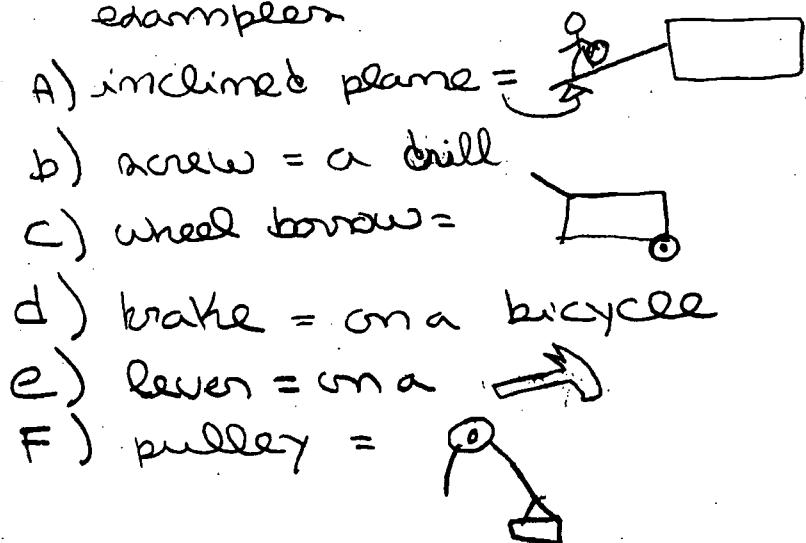 examples
A) inclined plane =
b) screw = a drill
c) wheel borrow =
d) brake = on a bicyclee
e) lever = on a
F) pulley =